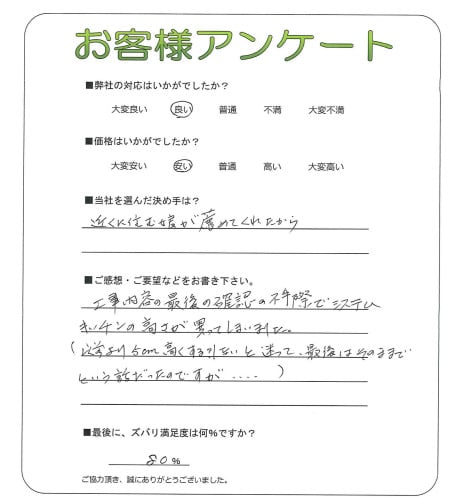 お客様アンケート
■弊社の対応はいかがでしたか？
大変良い 良い 普通 不満 大変不満
■価格はいかがでしたか？
大変安い 安い 普通 高い 大変高い
■当社を選んだ決め手は？
近くに住む娘が薦めてくれたから
■ご感想・ご要望などをお書き下さい。
工事内容の最後の確認の不手際でシステム
キッチンの高さが異ってしまいました。
より5cm高くする ないと迷って、最後はそのままで
という話だったのですが．．．．）
■最後に、ズバリ満足度は何％ですか？
80％
ご協力頂き、誠にありがとうございました。